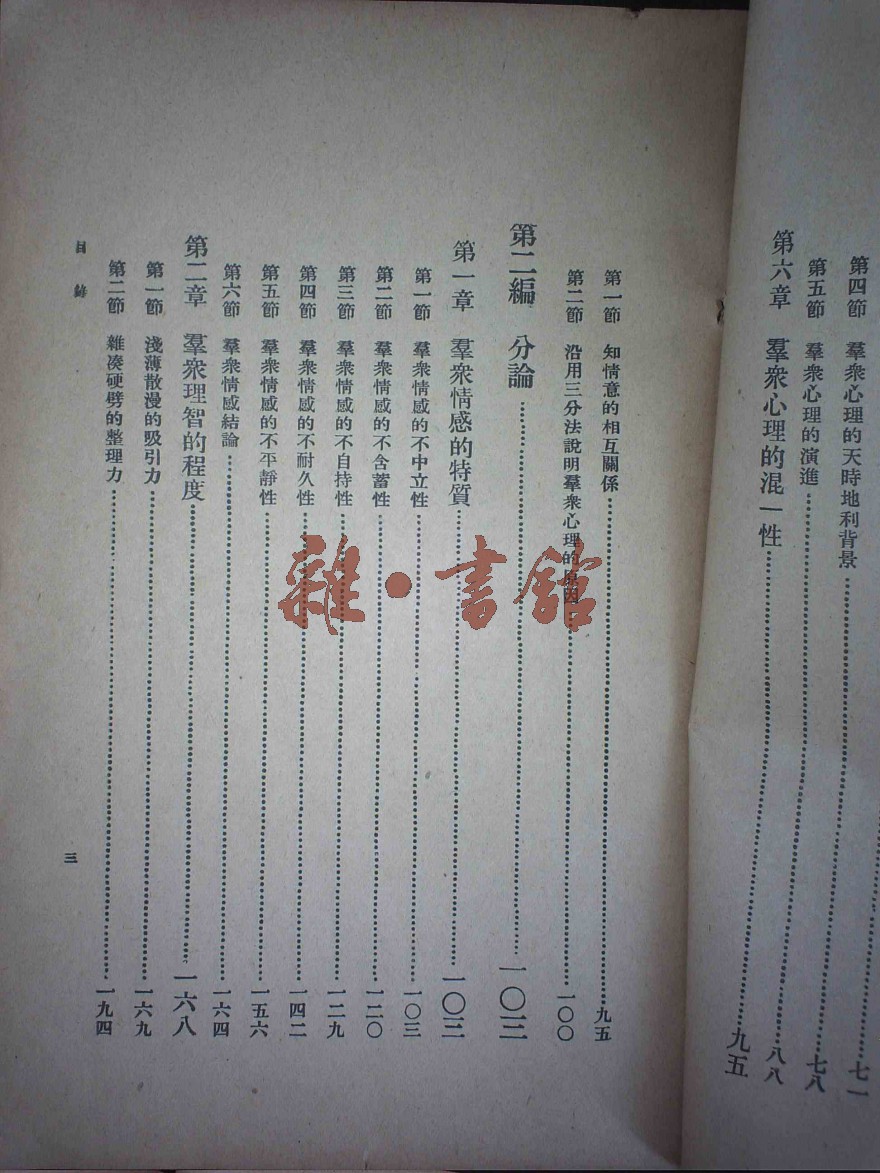 七一
第四節 羣衆心理的天時地利背景……七八
第五節 羣衆心理的演進……八八
第六章 羣衆心理的混一性……九五
第一節 知情意的相互關係……九五
第二節 沿用三分法說明羣衆心理的原因……一〇〇
第二編 分論……一〇三
第一章 羣衆情感的特質……一〇三
第一節 羣衆情感的不中立性……一〇三
第二節 羣衆情感的不含蓄性……一二〇
第三節 羣衆情感的不自持性……一二九
第四節 羣衆情感的不耐久性……一四二
第五節 羣衆情感的不平靜性……一五六
第六節 羣衆情感結論……一六四
第二章 羣衆理智的程度……一六八
第一節 淺薄散漫的吸引力……一六九
第二節 雜凑硬劈的整理力……一九四
目錄
三
雜·書館